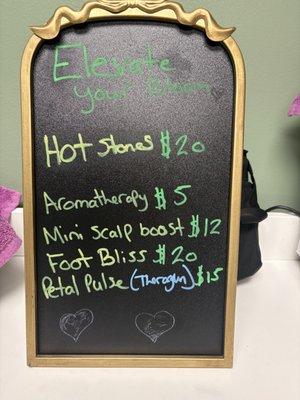 Elevate
your Bloom
Hot Stones $20
Aromatherapy $5
Mini Scalp boost $12
Foot Bliss $20
Petal Pulse (Theragun) $15